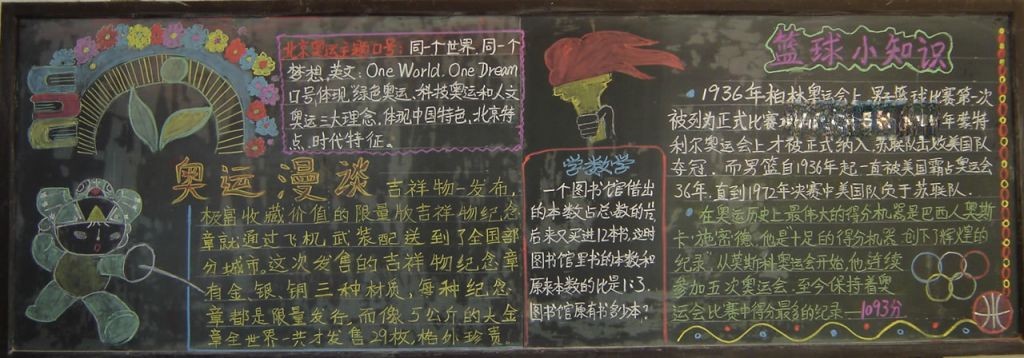 北京奥运主题口号：同一个世界,同一个
梦想,英文：One World. One Dream
口号体现绿色奥运、科技奥运和人文
奥运三大理念,体现中国特色、北京特
点、时代特征。
奥运漫谈
吉祥物一发布,
极富收藏价值的限量版吉祥物纪念
章就通过飞机,武装配送到了全国部
分城市。这次发售的吉祥物纪念章
有金、银、铜三种材质,每种纪念
章都是限量发行,而像5公斤的大金
章全世界一共才发售29枚,格外珍贵。
学数学
一个图书馆借出
的本数占总数的
后来又买进12本书,这时
图书馆里书的本数和
原来本数的比是1:3.
图书馆原有书多少本?
篮球小知识
1936年柏林奥运会上,男子篮球比赛第一次
被列为正式比赛
年蒙特
利尔奥运会上才被正式纳入,苏联队击败美国队
夺冠。而男篮自1936年起一直被美国霸占奥运会
36年,直到1972年决赛中美国队负于苏联队.
在奥运历史上最伟大的得分机器是巴西人奥斯
卡·施密德,他是十足的得分机器,创下了辉煌的
纪录,从莫斯科奥运会开始,他连续
参加五次奥运会,至今保持着奥
运会比赛中得分最多的纪录—1093分